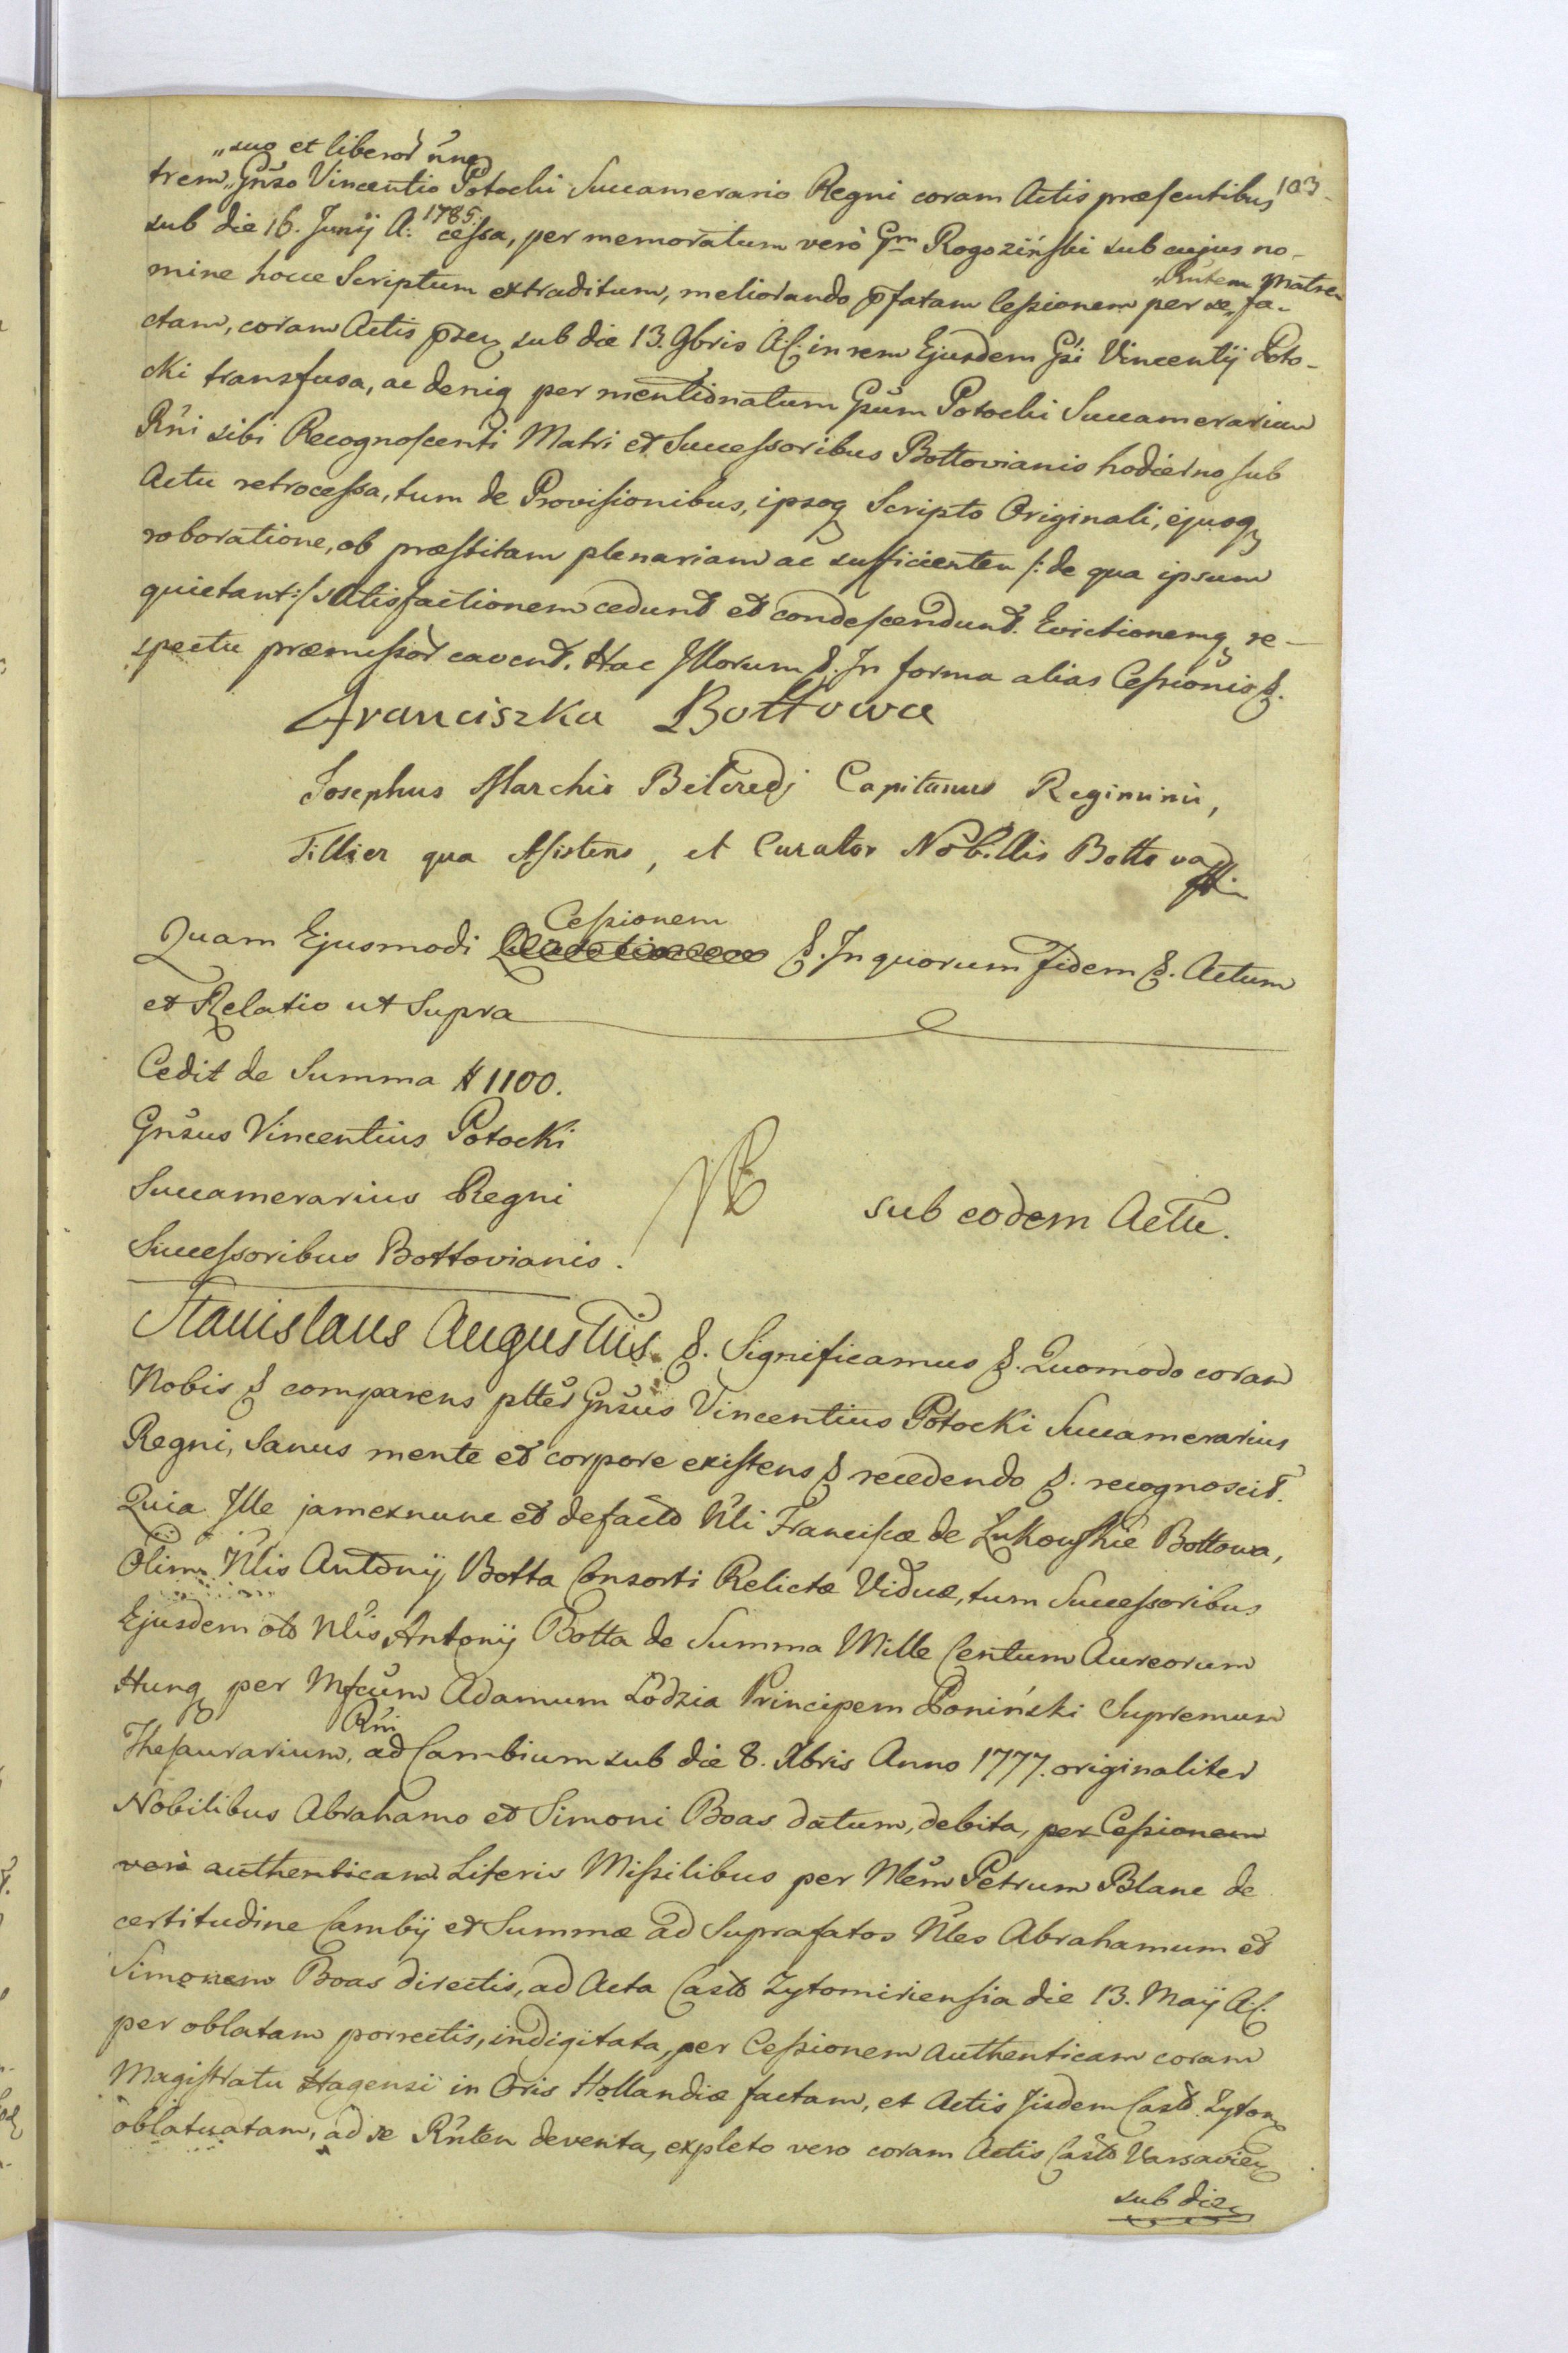 „suo et liberor̃ nñe
trem„ Gñso Vincentio Potocki Succamerario Regni coram Actis præsentibus 103
sub die 16. Junij A. 1785. cessa, per memoratum verò Gm Rogoziński sub cujus no-
mine hocce Scriptum extraditum, meliorando p̃fatam Cessionem per se „Rñtem Matrem fa-
ctam, coram Actis p̃seq sub die 13. 9bris A.C. in rem Ejusdem Gsi Vincentij Poto-
cki transfusa, ac deniq per mentionatum Gsum Potocki Succamerarium
Rñi sibi Recognoscenti Matri et Successoribus Bottovianis hodierno sub
Actu retrocessa, tum de Provisionibus, ipsoq Scripto Originali, ejusq
roboratione, ob præstitam plenariam ac sufficientem /: de qua ipsum
quietant :/ satisfactionem cedunt et condescendunt. Evictionemq re-
spectu præmissor̃ cavent. Hac Illorum &. In forma alias Cessionis &.
Franciszka Bottowa
Josephus Marchio Belcredj Capitanus Regiminis,
Tillier qua Assistens, et Curator Nobillis Botto va
Cessionem
Quam Ejusmodi &. In quorum Fidem &. Actum
et Relatio ut Supra
Cedit de Summa # 1100.
Gñsus Vincentius Potocki
Succamerarius Regni
Successoribus Bottovianis.
NB
sub eodem Actu.
Stanislaus Augustus &. Significamus &. Quomodo coram
Nobis & comparens pltter Gñsus Vincentius Potocki Succamerarius
Regni, Sanus mente et corpore existens & recedendo &. recognoscit.
Quia Ille jamexnunc et defacto Nli Franciscæ de Łukowskie Bottowa,
Olim Nlis Antonij Botta Consorti Relictæ Viduæ, tum Successoribus
Ejusdem olb Nlis Antonij Botta de Summa Mille Centum Aureorum
Hung per Mfcum Adamum Łodzia Principem Poniński Supremum
Thesaurarium, Rñi ad Cambium sub die 8. Xbris Anno 1777. originaliter
Nobilibus Abrahamo et Simoni Boas datum, debita, per Cessionem
verò authenticam Literis Missilibus per Nlem Petrum Blanc de
certitudine Cambij et Summæ ad Suprafatos Nles Abrahamum et
Simonem Boas directis, ad Acta Castr Zytomiriensia die 13. Maij A.C.
per oblatam porrectis, indigitata, per Cessionem Authenticam coram
Magistratu Hagensi in Oris Hollandiæ factam, et Actis Iisdem Castr Zytom
oblatuatam, ad se Rñtem deventa, expleto vero coram Actis Castr Varsavien
sub die